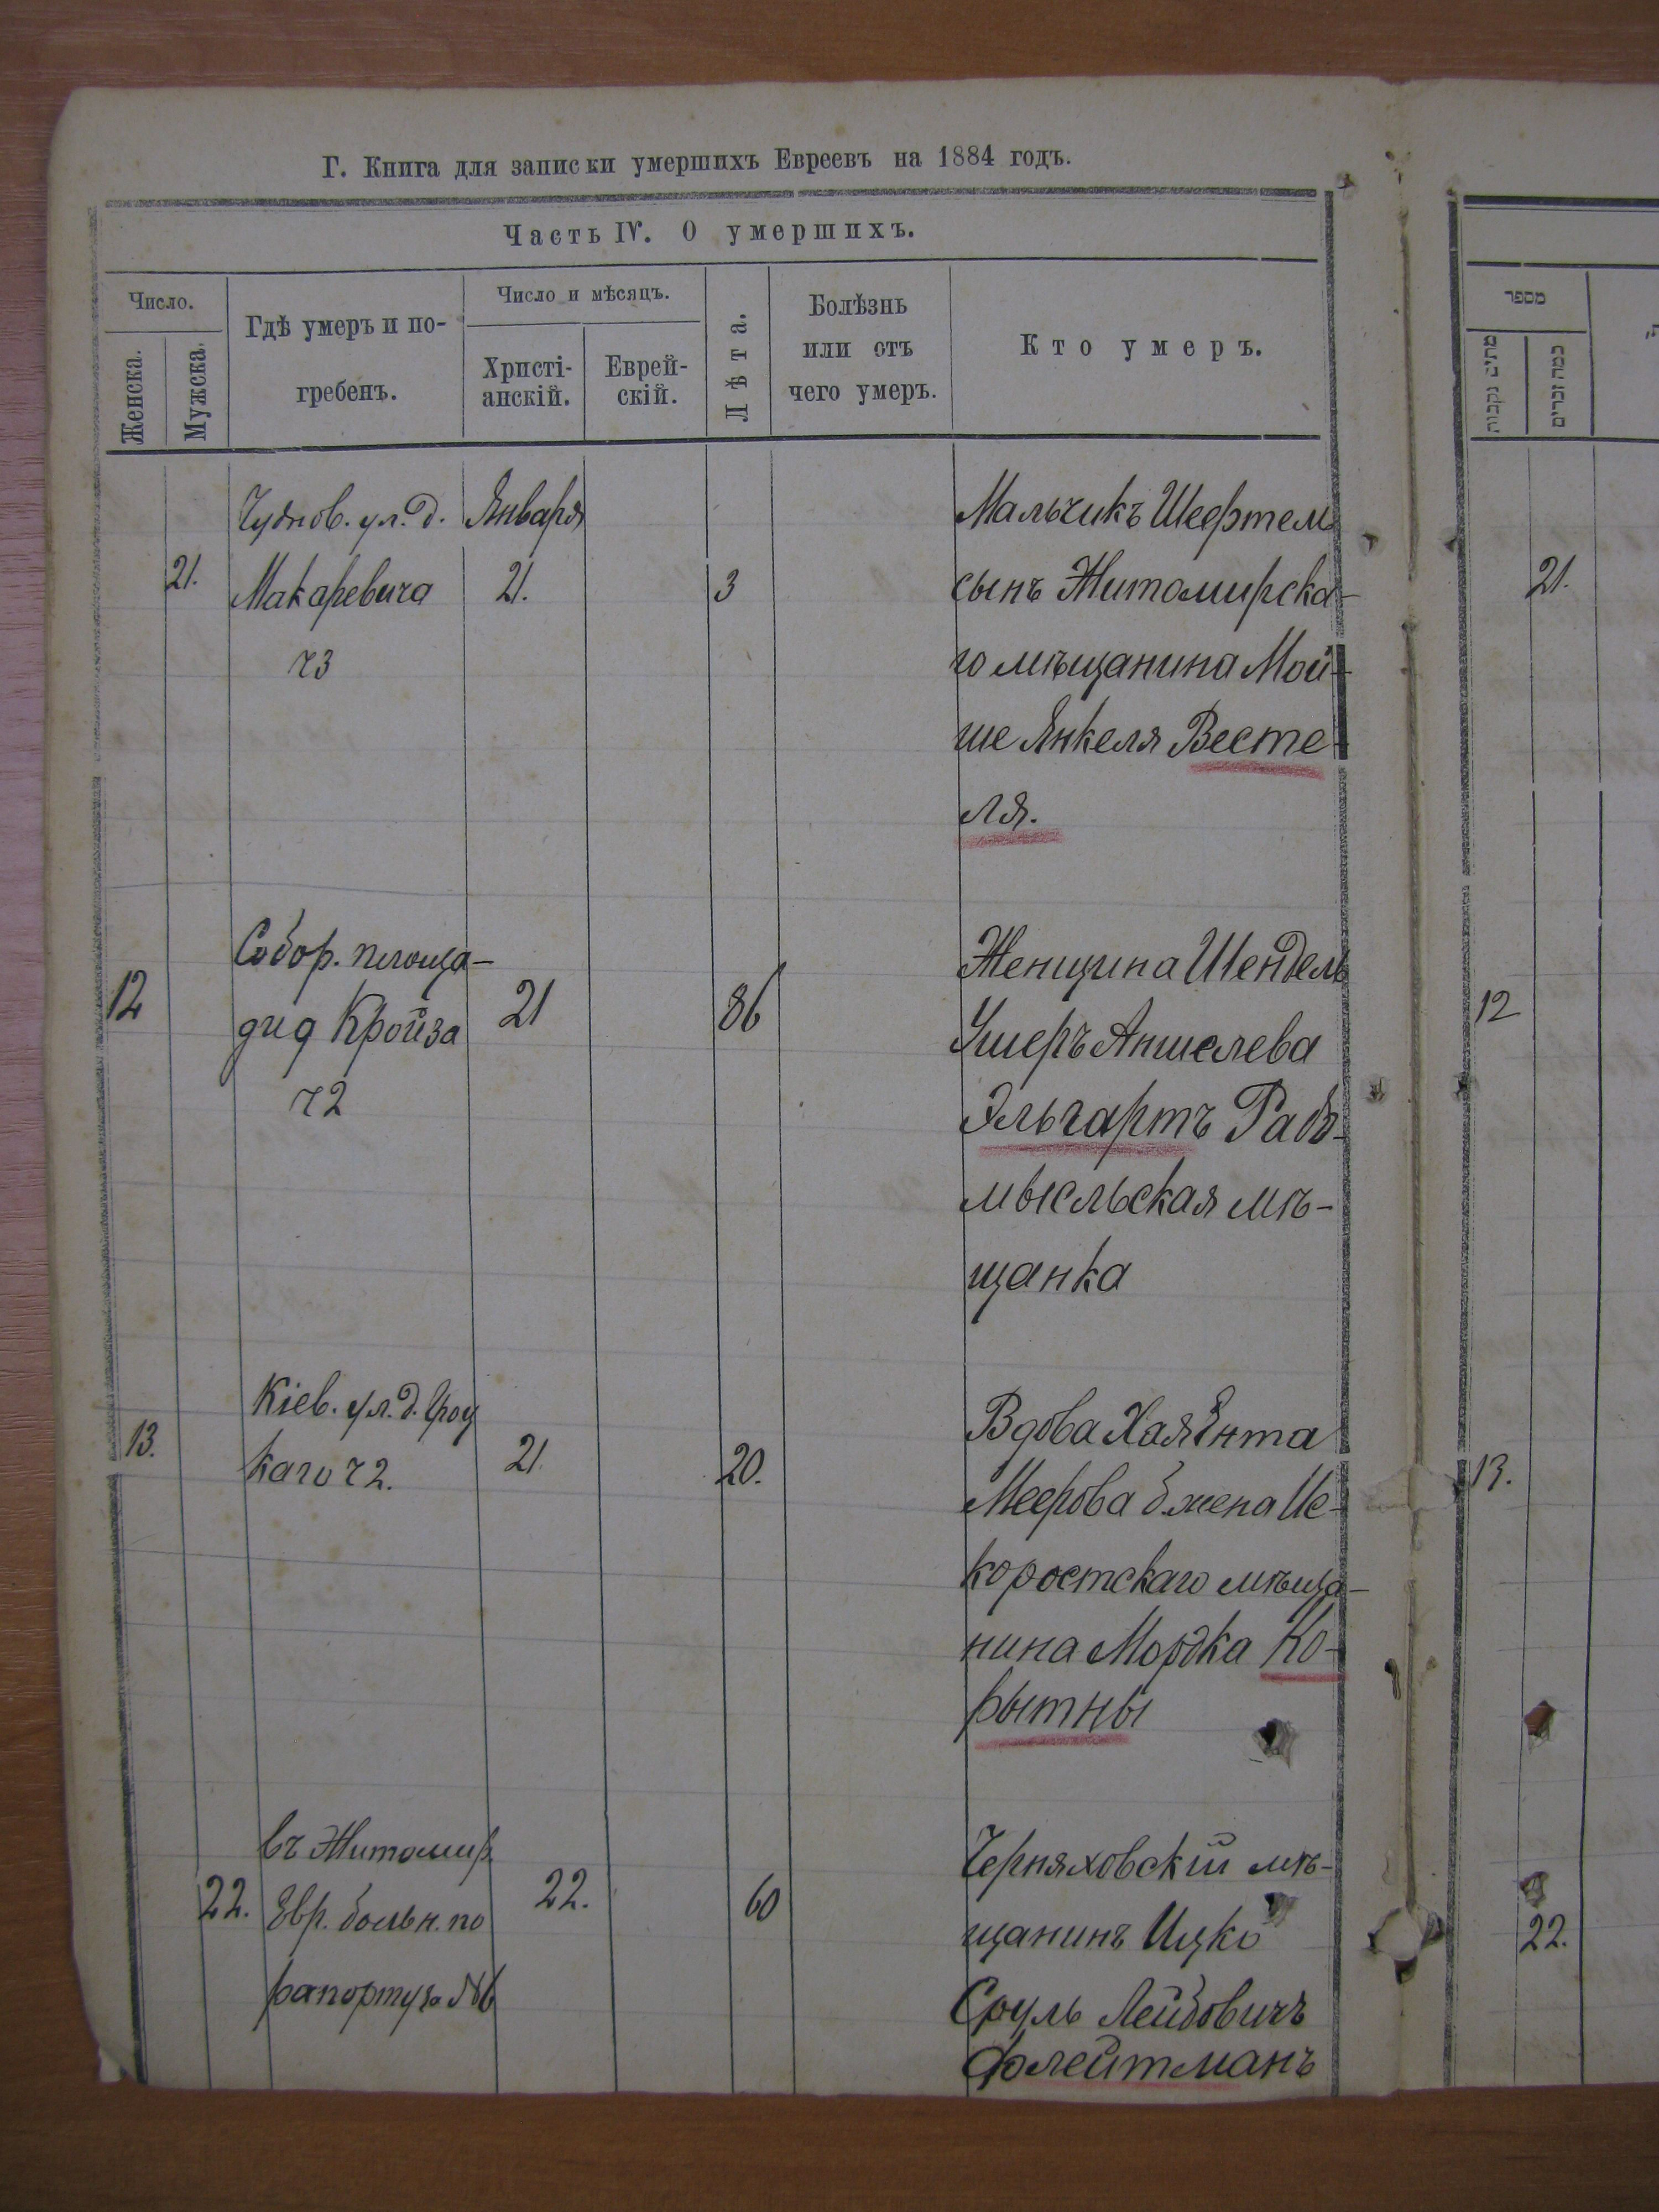 Г. Книга для записки умершихъ Евреевъ на 1884 годъ.
Часть IV. О умершихъ.
Число.
Женска.
Мужска.
Гдѣ умеръ и по-
гребенъ.
Число и мѣсяцъ.
Христі-
анскій.
Еврей-
скій.
Лѣта.
Болѣзнь
или отъ
чего умеръ.
Кто умеръ.
מספר
כמה זכרים
21.
Чуднов. ул. д.
Макаревича
ч3
Января
21.
3
Мальчикъ Шефтель
сынъ Житомирска-
го мѣщанина Мой-
ше Янкеля Весте-
ля.
21.
12
Собор. площа-
ди д Кройза
ч2
21
86
Женщина Шендель
Ушеръ Аншелева
Эльгартъ Радо-
мысльская мѣ-
щанка
12
13.
Кіев. ул. д.
каго ч2.
21.
20.
Вдова Хая Ента
Меерова б. жена Ис-
коростскаго мѣща-
нина Мордка Ко-
рытны
13.
22.
въ Житомир.
Евр. больн. по
рапорту за №6
22.
60
Черняховскій мѣ-
щанинъ Ицко
Сруль Лейбовичъ
Флейтманъ
22.